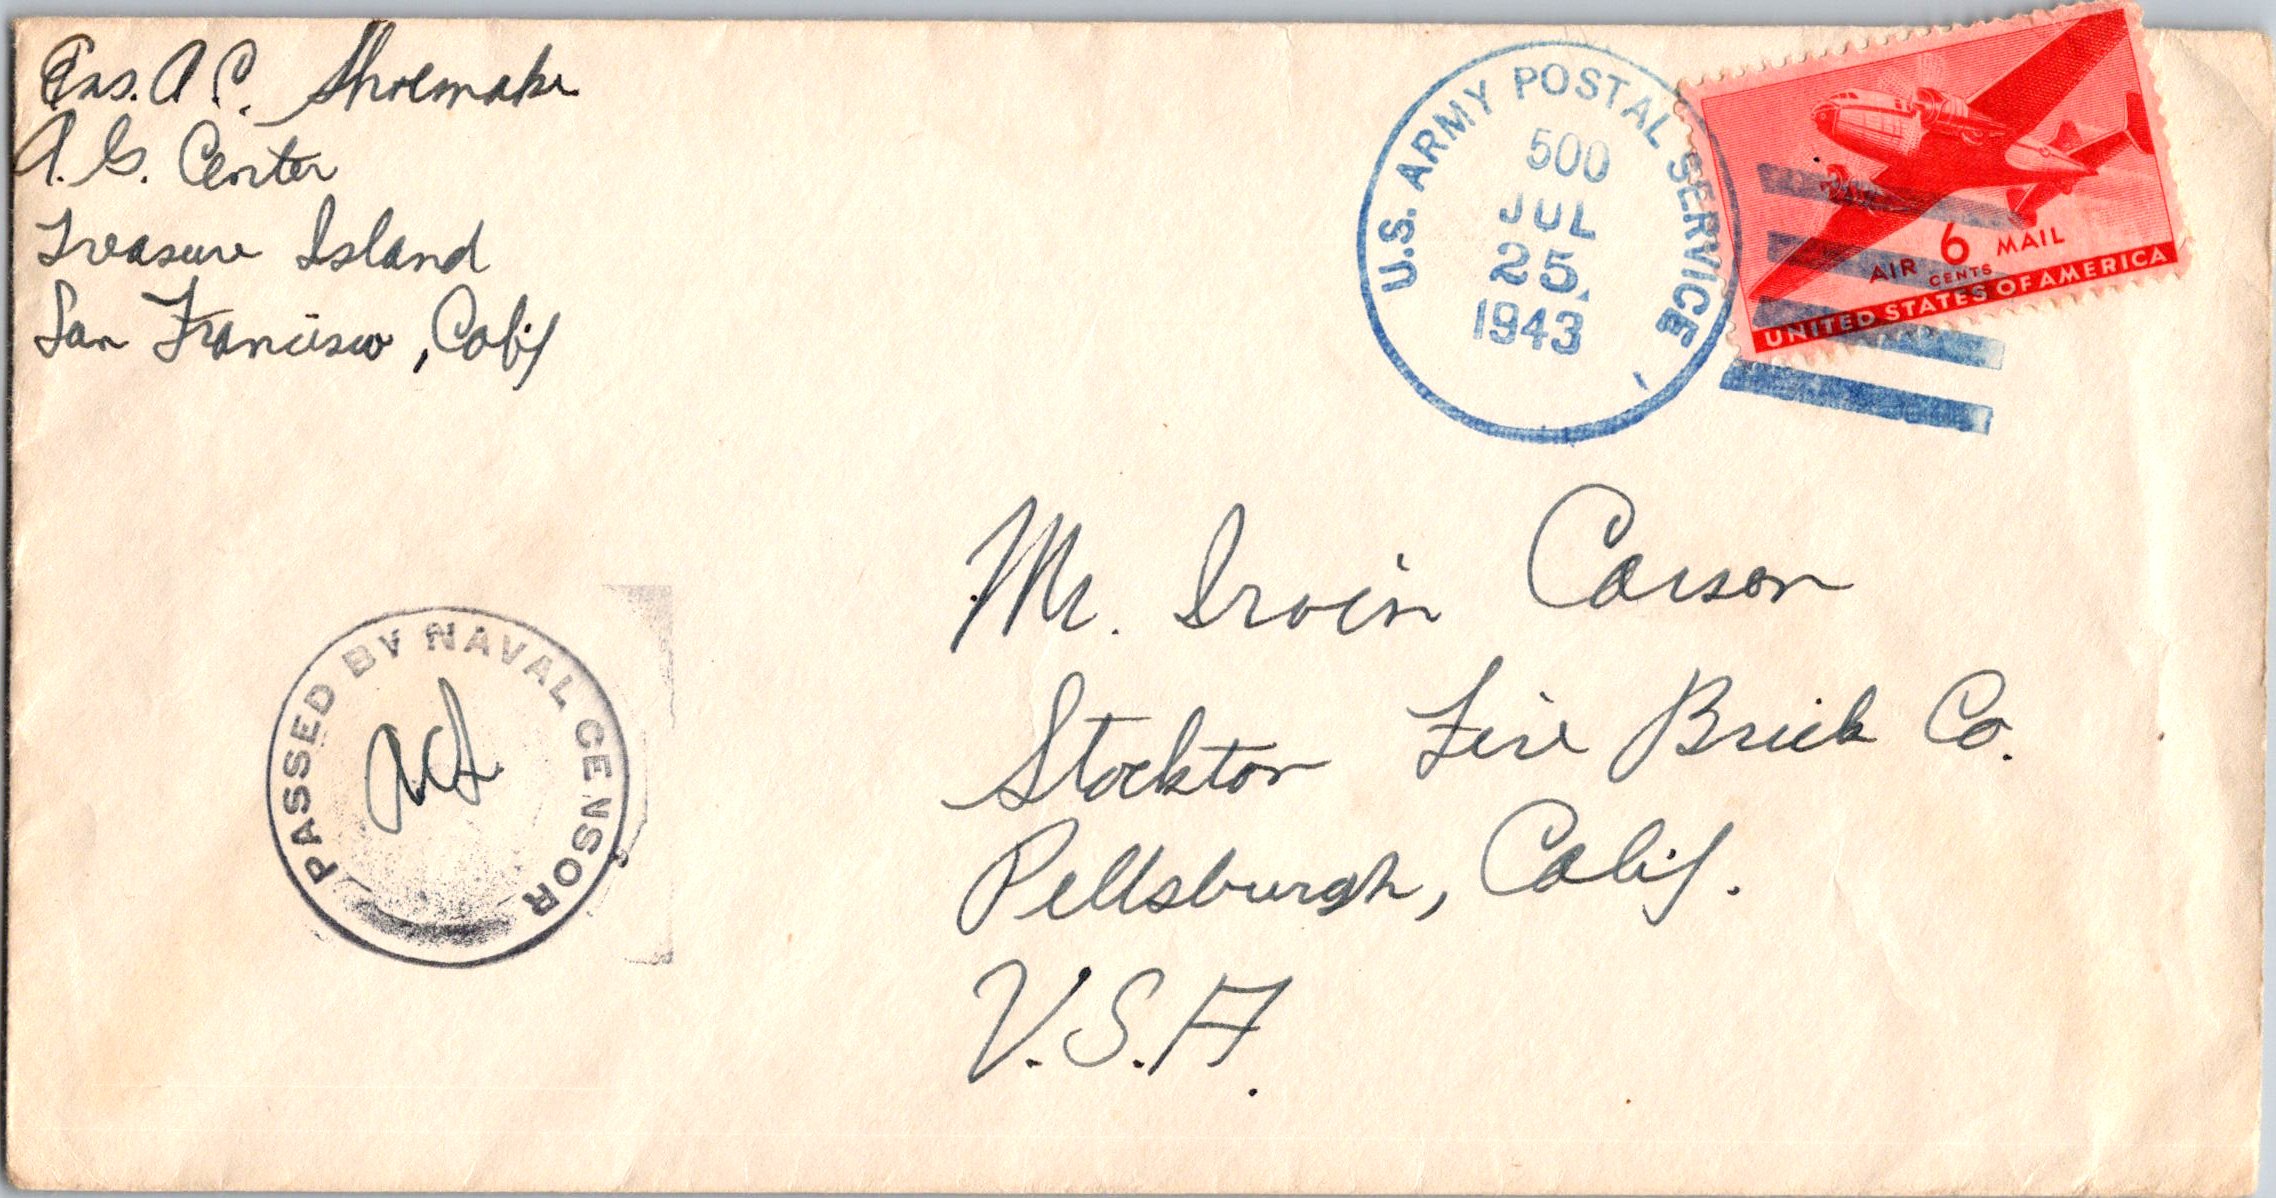 Ens. A C. Shoemake
A. G. Center
Treasure Island
San Francisco, Calif
U.S. ARMY POSTAL SERVICE
500
JUL
25
1943
AIR 6 CENTS MAIL
UNITED STATES OF AMERICA
PASSED BY NAVAL CENSOR
ACS
Mr. Irvin Carson
Stockton Fire Brick Co.
Pittsburgh, Calif.
U.S.A.